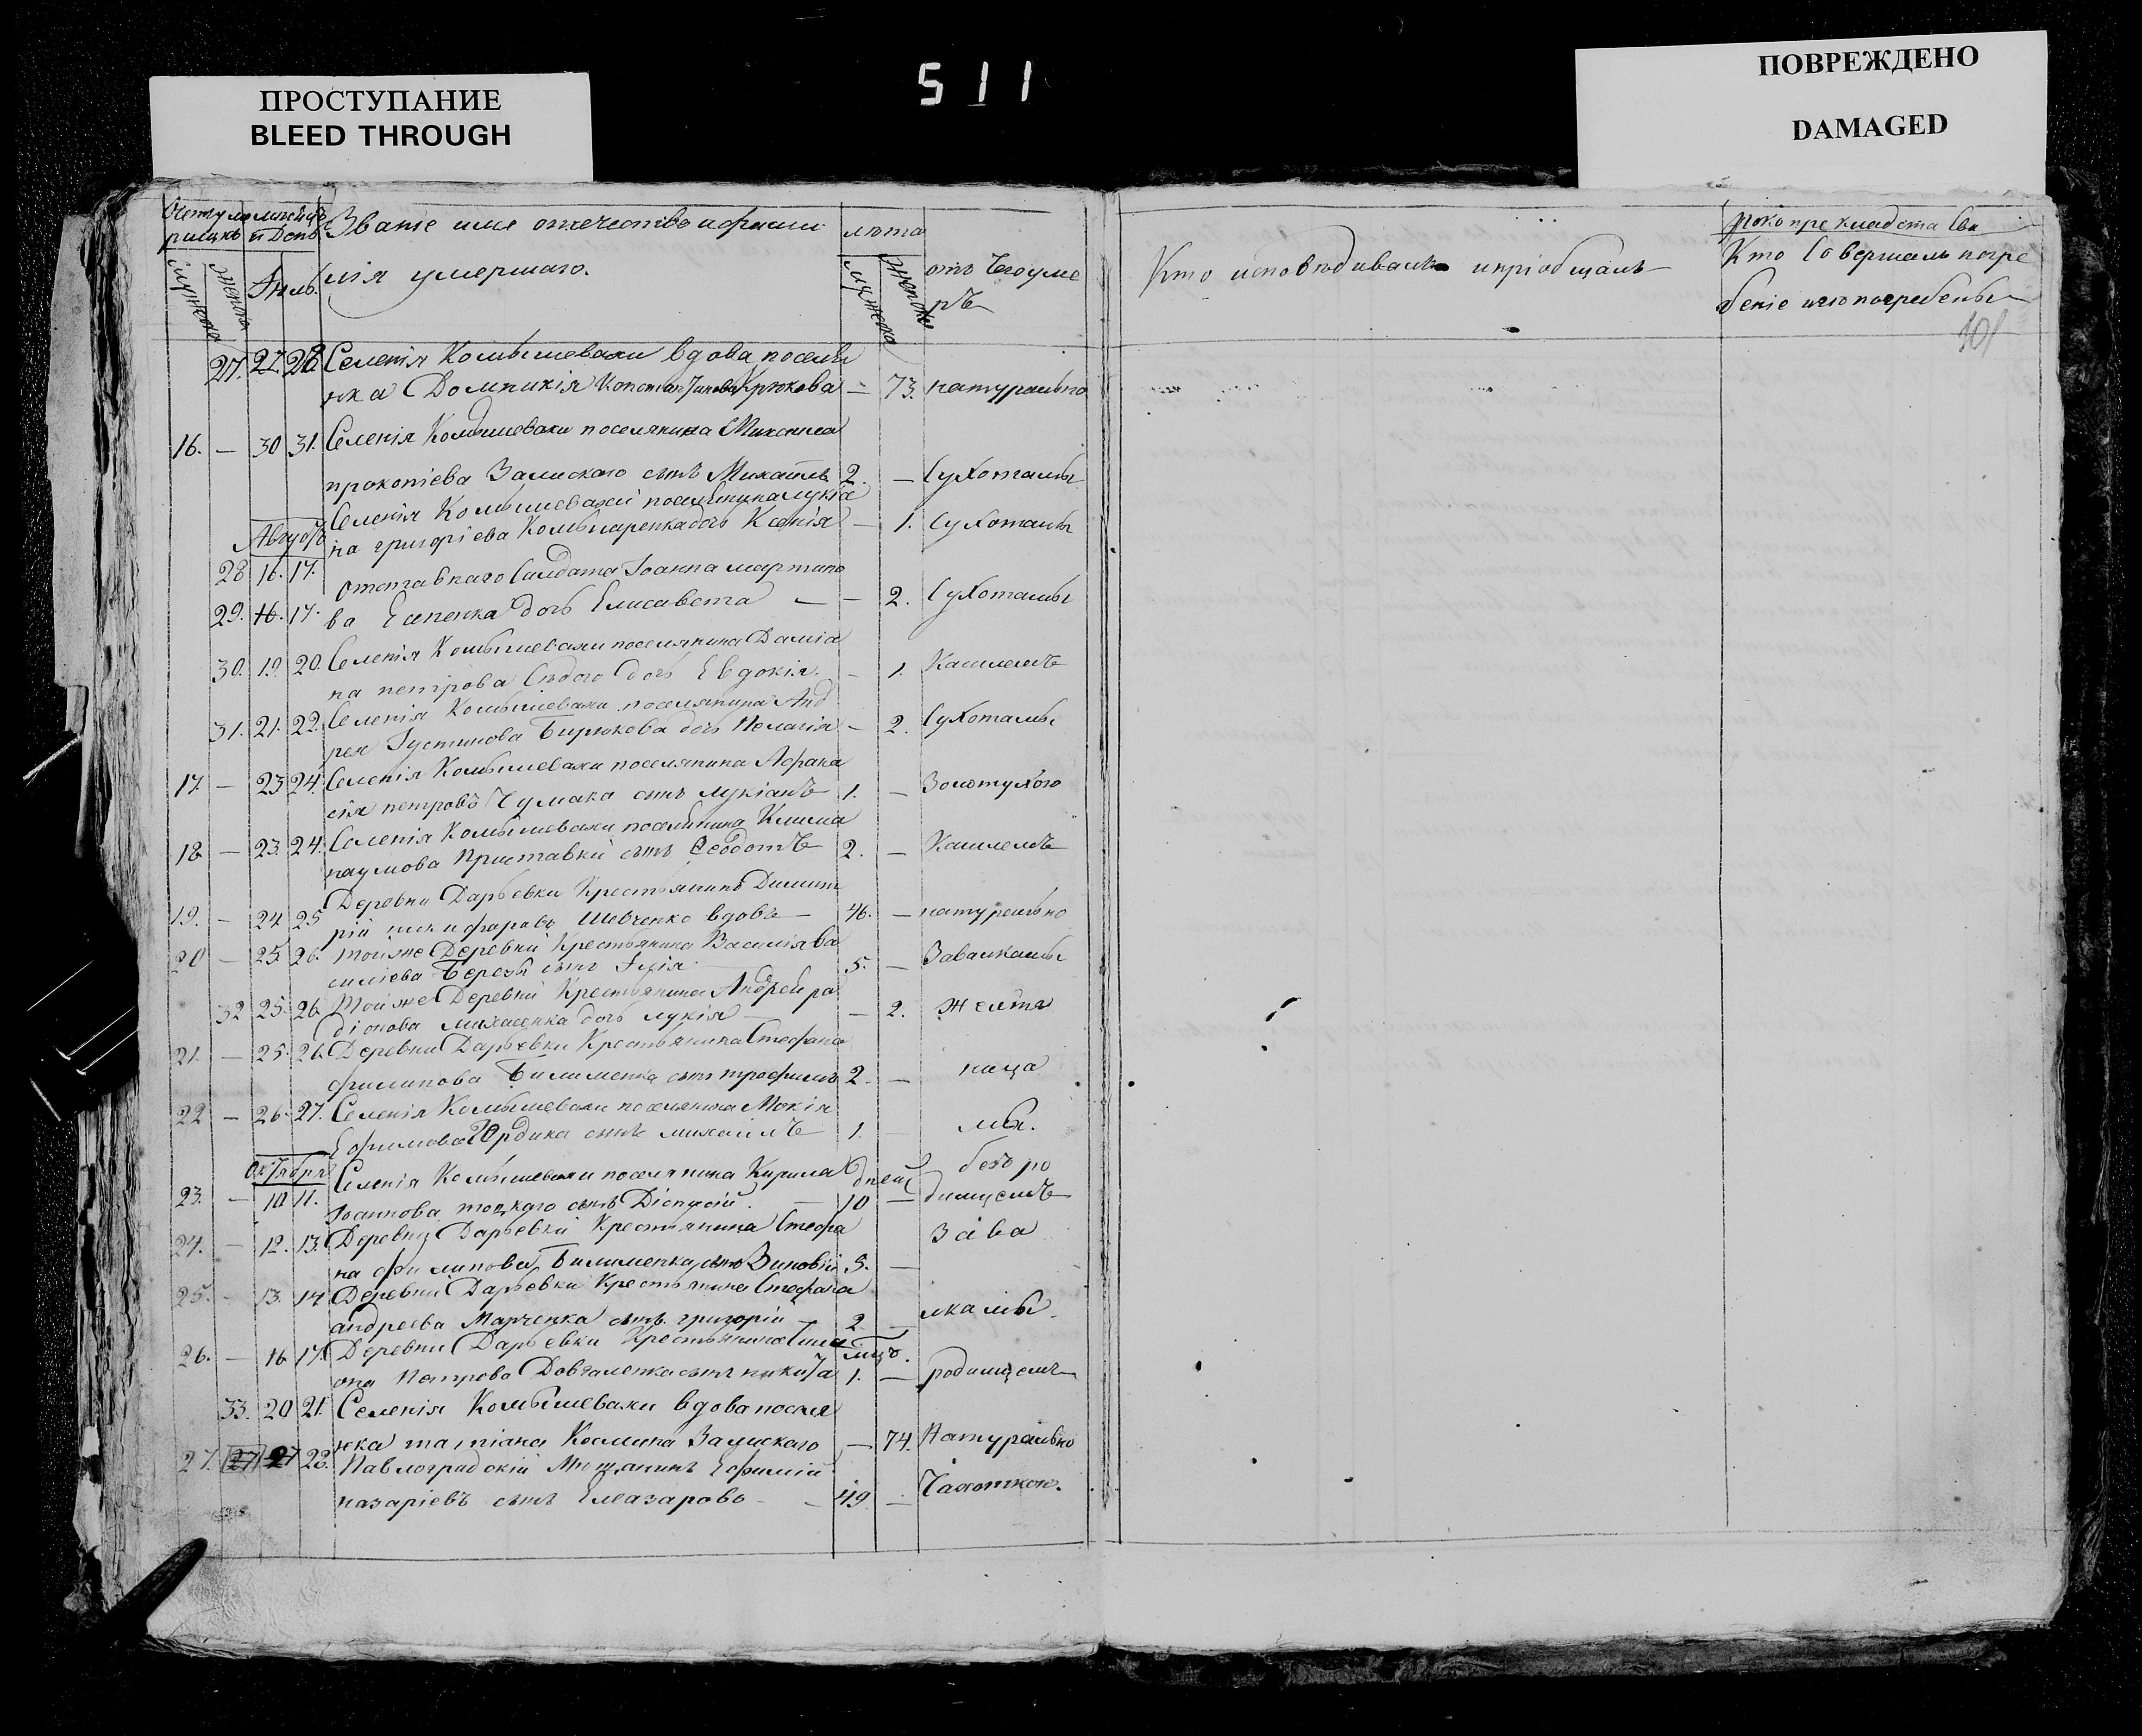 ПРОСТУПАНИЕ
BLEED THROUGH
511
ПОВРЕЖДЕНО
DAMAGED
Званіе имя отечество и фами
лія умершаго.
лѣта
мужеска
женска
отъ чего уме
ръ
Кто исповѣдивалъ и пріобщалъ
Кто совершалъ погре
беніе и гдѣ погребены
101
27. 27. 28. Селенія Комышевахи вдова поселян
ка Домникія Константинова Крюкова — 73. натурально
16. — 30 31. Селенія Комышевахи поселянина Михаила
прокопіева Залискаго сынъ Михаилъ 2. — Сухотамы
Селенія Комышевахи поселянина Лукіа
Августъ на григоріева Комынаренка дочь Ксенія — 1. Сухотамы
28 16. 17.
отставнаго Салдата Іоанна мартино
29. 16. 17. ва Есипенка дочь Елисавета — — 2. Сухотамы
30. 19. 20. Селенія Комышевахи поселянина Даміа
на петрова Сѣдого дочь Евдокія. — 1. Кашлемъ
31. 21. 22. Селенія Комышевахи поселянина Анд
рея Іустинова Бирюкова дочь Пелагія — 2. Сухотамы
17. — 23 24. Селенія Комышевахи поселянина Афана
сія петрова Чумака сынъ Лукіанъ 1. — Золотухою
18 — 23. 24. Селенія Комышевахи поселянина Клима
наумова Приставки сынъ Феодотъ 2. — Кашлемъ
19. — 24 25 Деревни Дарьевки Крестьянинъ Димит
рій никифоровъ Шевченко вдовъ — 46. — натурально
20 — 25. 26. тойже Деревни Крестьянина Василія Ва
силіева Березы сынъ Илія 5. — Завалкамы
32 25. 26. Тойже Деревни Крестьянина Андрея ра
діонова михасенка дочь лукія — — 2. желтя
21. — 25. 26. Деревни Дарьевки Крестьянина Стефана
филипова Билименка сынъ трофимъ 2. — ница
22 — 26. 27. Селенія Комышевахи поселянина Мокія
Ефимова Юрдика сынъ михаилъ 1. — мы.
Октября Селенія Комышевахи поселянина Кирила дней безъ ро
23. — 10 11. Іоаннова топкаго сынъ Діонисій. — 10 — димцемъ
24. — 12. 13. Деревни Дарьевки Крестьянина Стефа Зава
на филипова Билименка сынъ Зиновій 5. —
25. — 13. 14 Деревни Дарьевки Крестьянина Стефана
андреева Марченка сынъ григорій — 2 — лкамы.
26. — 16 17. Деревни Дарьевки Крестьянина Сима мцъ.
она Петрова Довгаленка сынъ никита 1. — родимцемъ
33. 20 21. Селенія Комышевахи вдова поселя
нка татіана Космина Залискаго — 74. Натурально
27. 27 28. Павлоградскій Мѣщанинъ Ефимій
назаріевъ сынъ Елеазаровъ — 49 — Чахоткою.